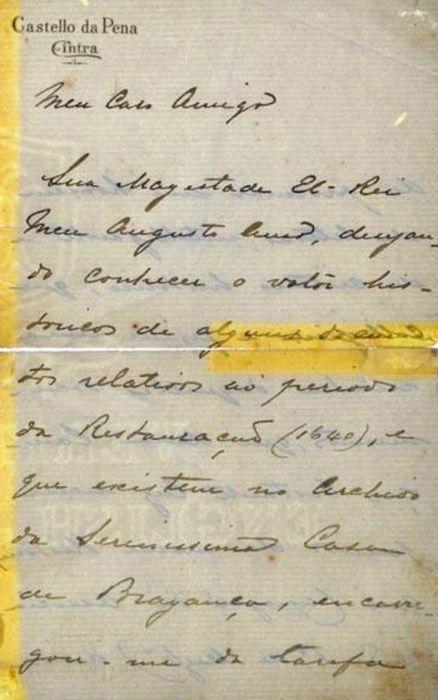 Castello da Pena
Cintra
Meu Caro Amigo
Sua Magestade El-Rei
Meu Augusto Amo, desejan-
do conhecer o valor his-
torico de alguns documen-
tos relativos ao periodo
da Restauração (1640), e
que existem no Archivo
da Serenissima Casa
de Bragança, encarre-
gou-me da tarefa